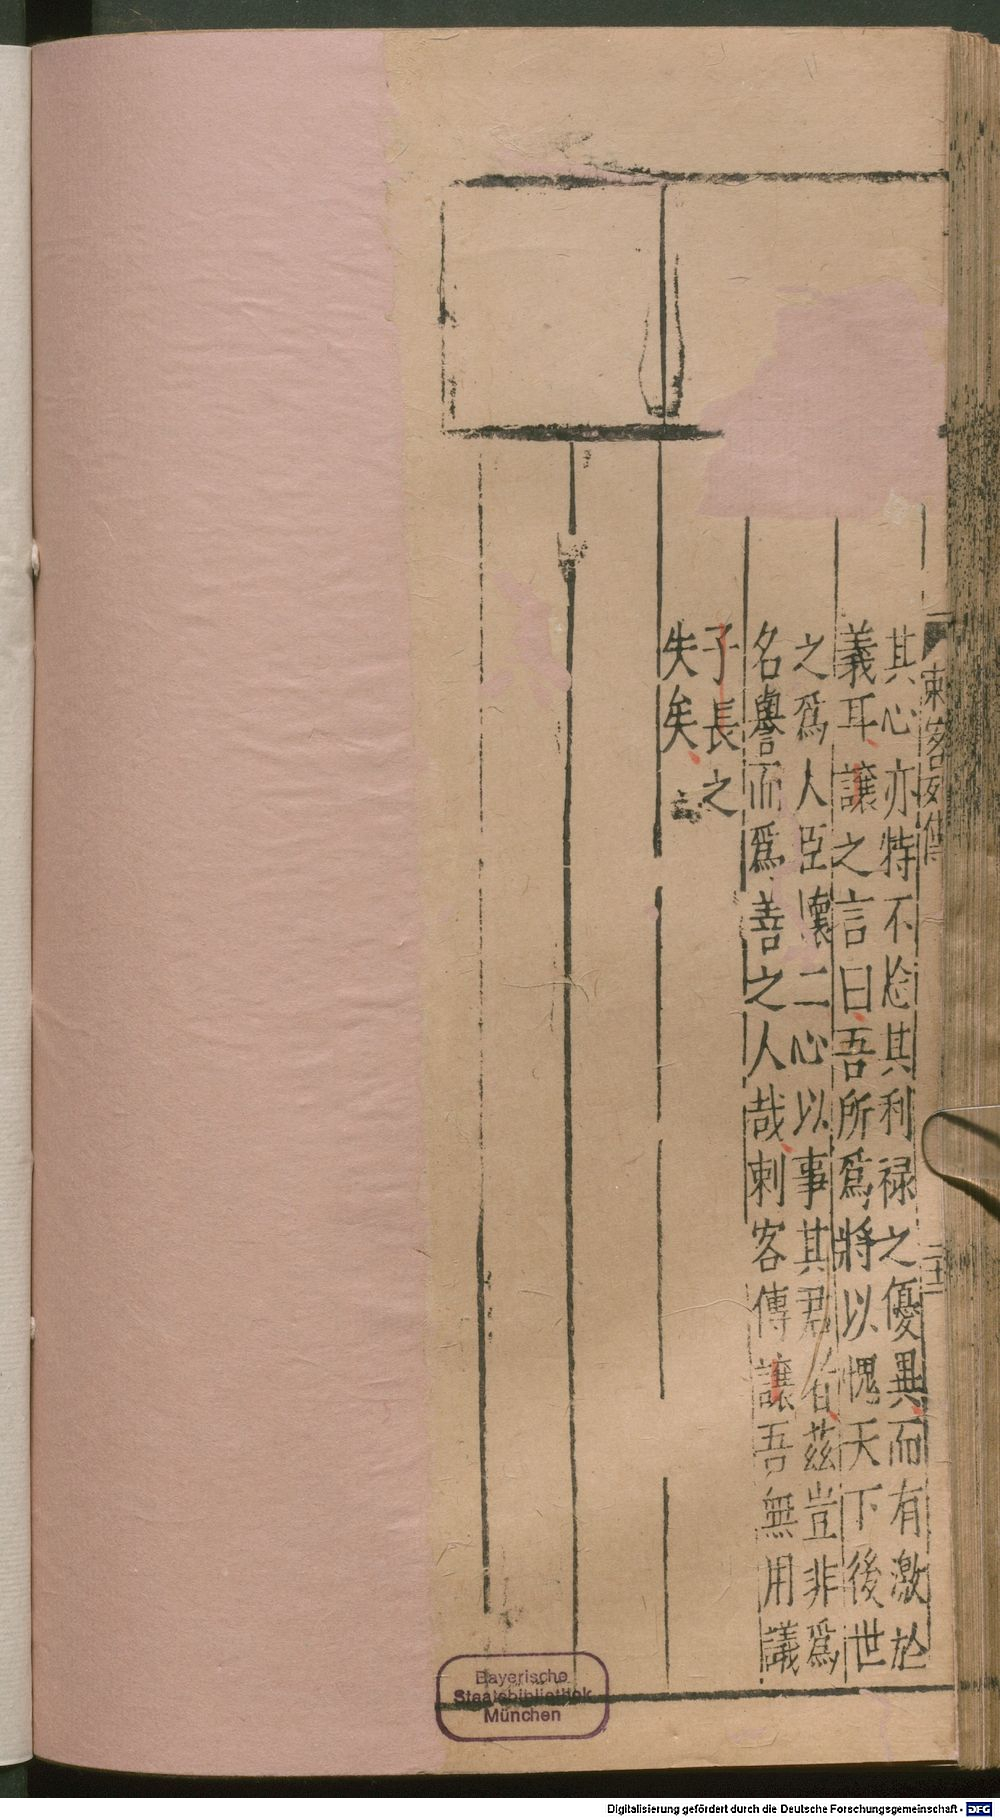 刺客列傳
其心亦特不其利祿之優異而有激於
義耳讓之言曰吾所爲將以愧天下後世
之爲人臣懷二心以事其君者茲豈非爲
名譽而爲善之人哉刺客傳讓吾無用議
子長之
失矣
Bayerische
Staatsbibliothek
München
Digitalisierung gefördert durch die Deutsche Forschungsgemeinschaft - DFG